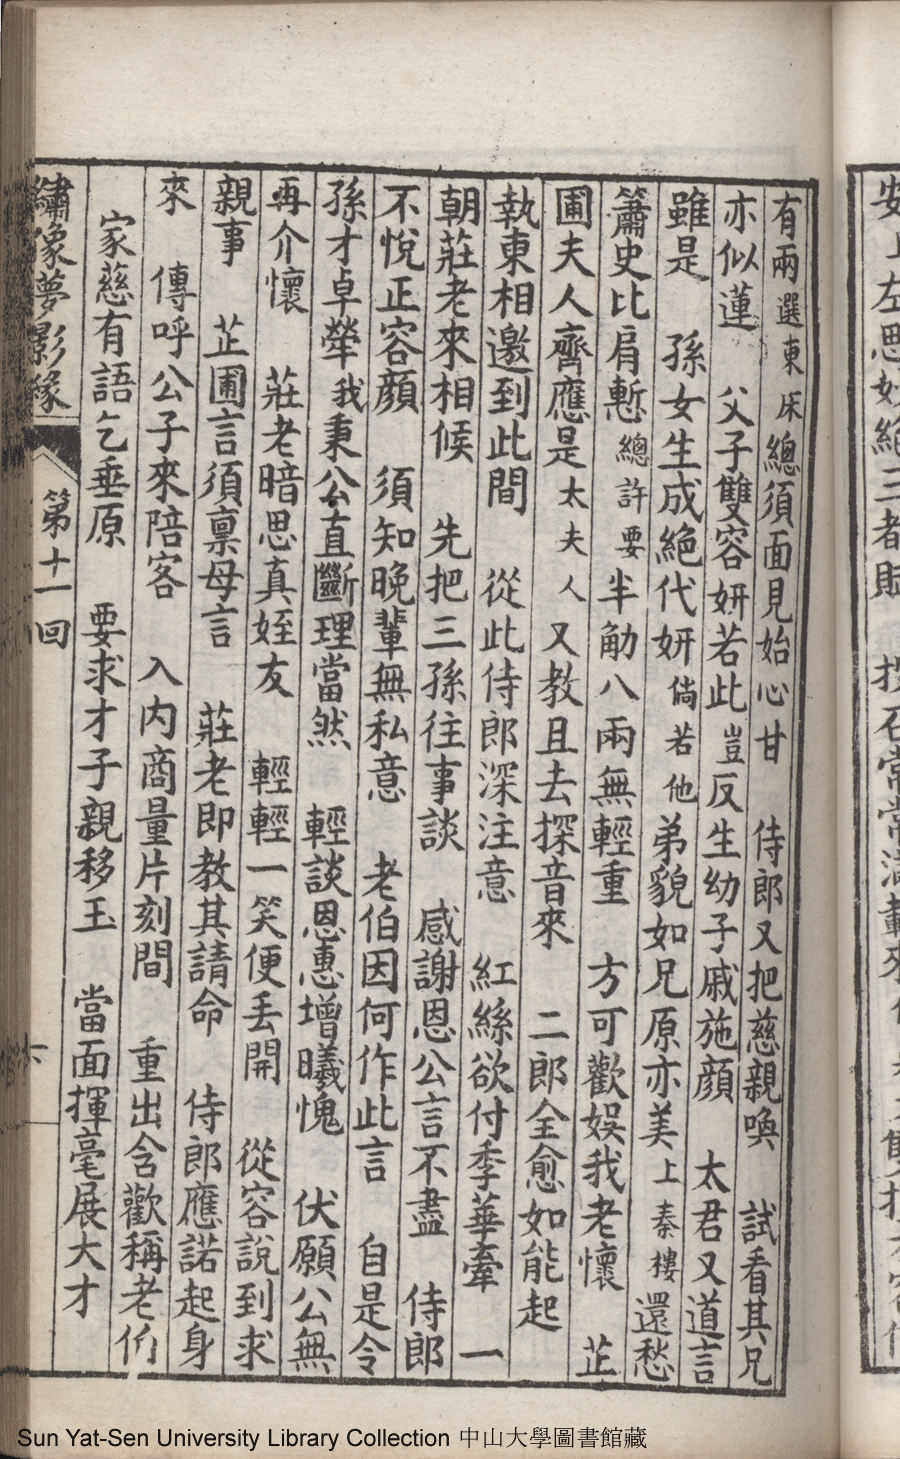 有兩選東床總須面見始心甘　侍郎又把慈親喚　試看其兄
亦似蓮　父子雙容妍若此豈反生幼子戚施顏　太君又道言
雖是　孫女生成絕代妍倘若他弟貌如兄原亦美上秦樓還愁
簫史比肩慙總許要半觔八兩無輕重　方可歡娛我老懷　芷
圃夫人齊應是太夫人又教且去探音來　二郎全愈如能起
執柬相邀到此間　從此侍郎深注意　紅絲欲付季華牽　一
朝莊老來相候　先把三孫往事談　感謝恩公言不盡　侍郎
不悅正容顏　須知晚輩無私意　老伯因何作此言　自是令
孫才卓犖我秉公直斷理當然　輕談恩惠增曦愧　伏願公無
再介懷　莊老暗思真姪友　輕輕一笑便丟開　從容說到求
親事　芷圃言須稟母言　莊老即教其請命　侍郎應諾起身
來　傳呼公子來陪客　入內商量片刻間　重出含歡稱老伯
家慈有語乞垂原　要求才子親移玉　當面揮毫展大才
繡像夢影緣　第十一回
安上左思妙絕三者賦
Sun Yat-Sen University Library Collection 中山大學圖書館藏